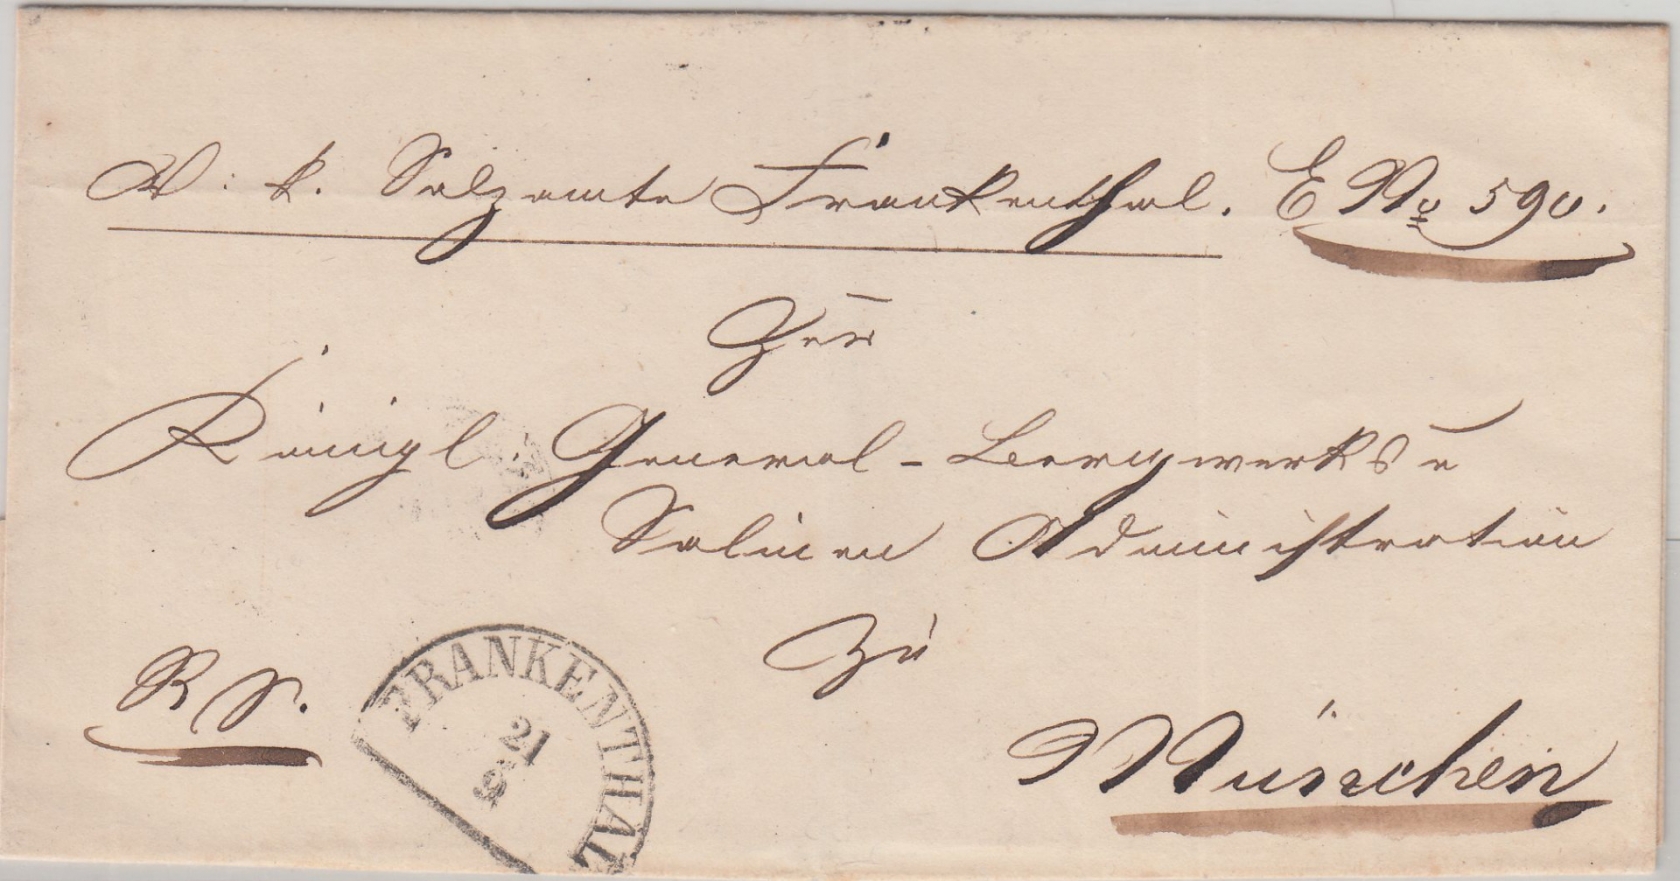 V: k. Salzamte Frankenthal. E No 590.
Zur
Königl: General-Bergwerks u
Salinen Administration
zu
München
R S.
FRANKENTHAL
21
9